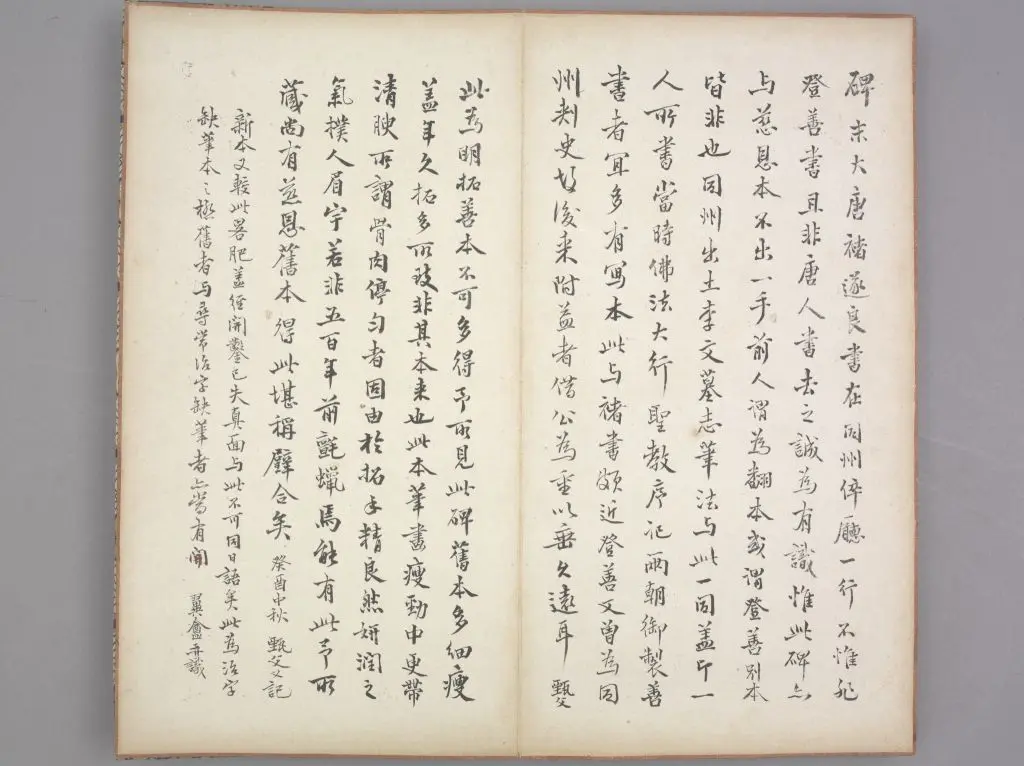 碑末大唐褚遂良書在同州倅廳一行不惟非
登善書且非唐人書去之誠為有識惟此碑亦
与慈恩本不出一手前人謂為翻本或謂登善別本
皆非也同州出土李文墓志筆法与此一同蓋即一
人所書當時佛法大行聖教序記兩朝御製善
書者宜多有寫本此与褚書頗近登善又曾為同
州刺史故後来附益者借公為重以垂久遠耳 甄父
此為明拓善本不可多得予所見此碑舊本多細瘦
蓋年久拓多所致非其本来也此本筆畫瘦勁中更帶
清腴所謂骨肉停勻者固由於拓手精良然妍潤之
氣撲人眉宇若非五百年前氈蠟焉能有此予所
藏尚有慈恩舊本得此堪稱璧合矣 癸酉中秋 甄父又記
新本又較此畧肥蓋經開鑿已失真面与此不可同日語矣此為治字
缺筆本之極舊者与尋常治字缺筆者亦當有間 翼盦再識